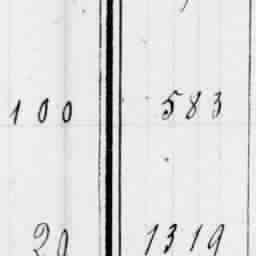 100 583
20 1319